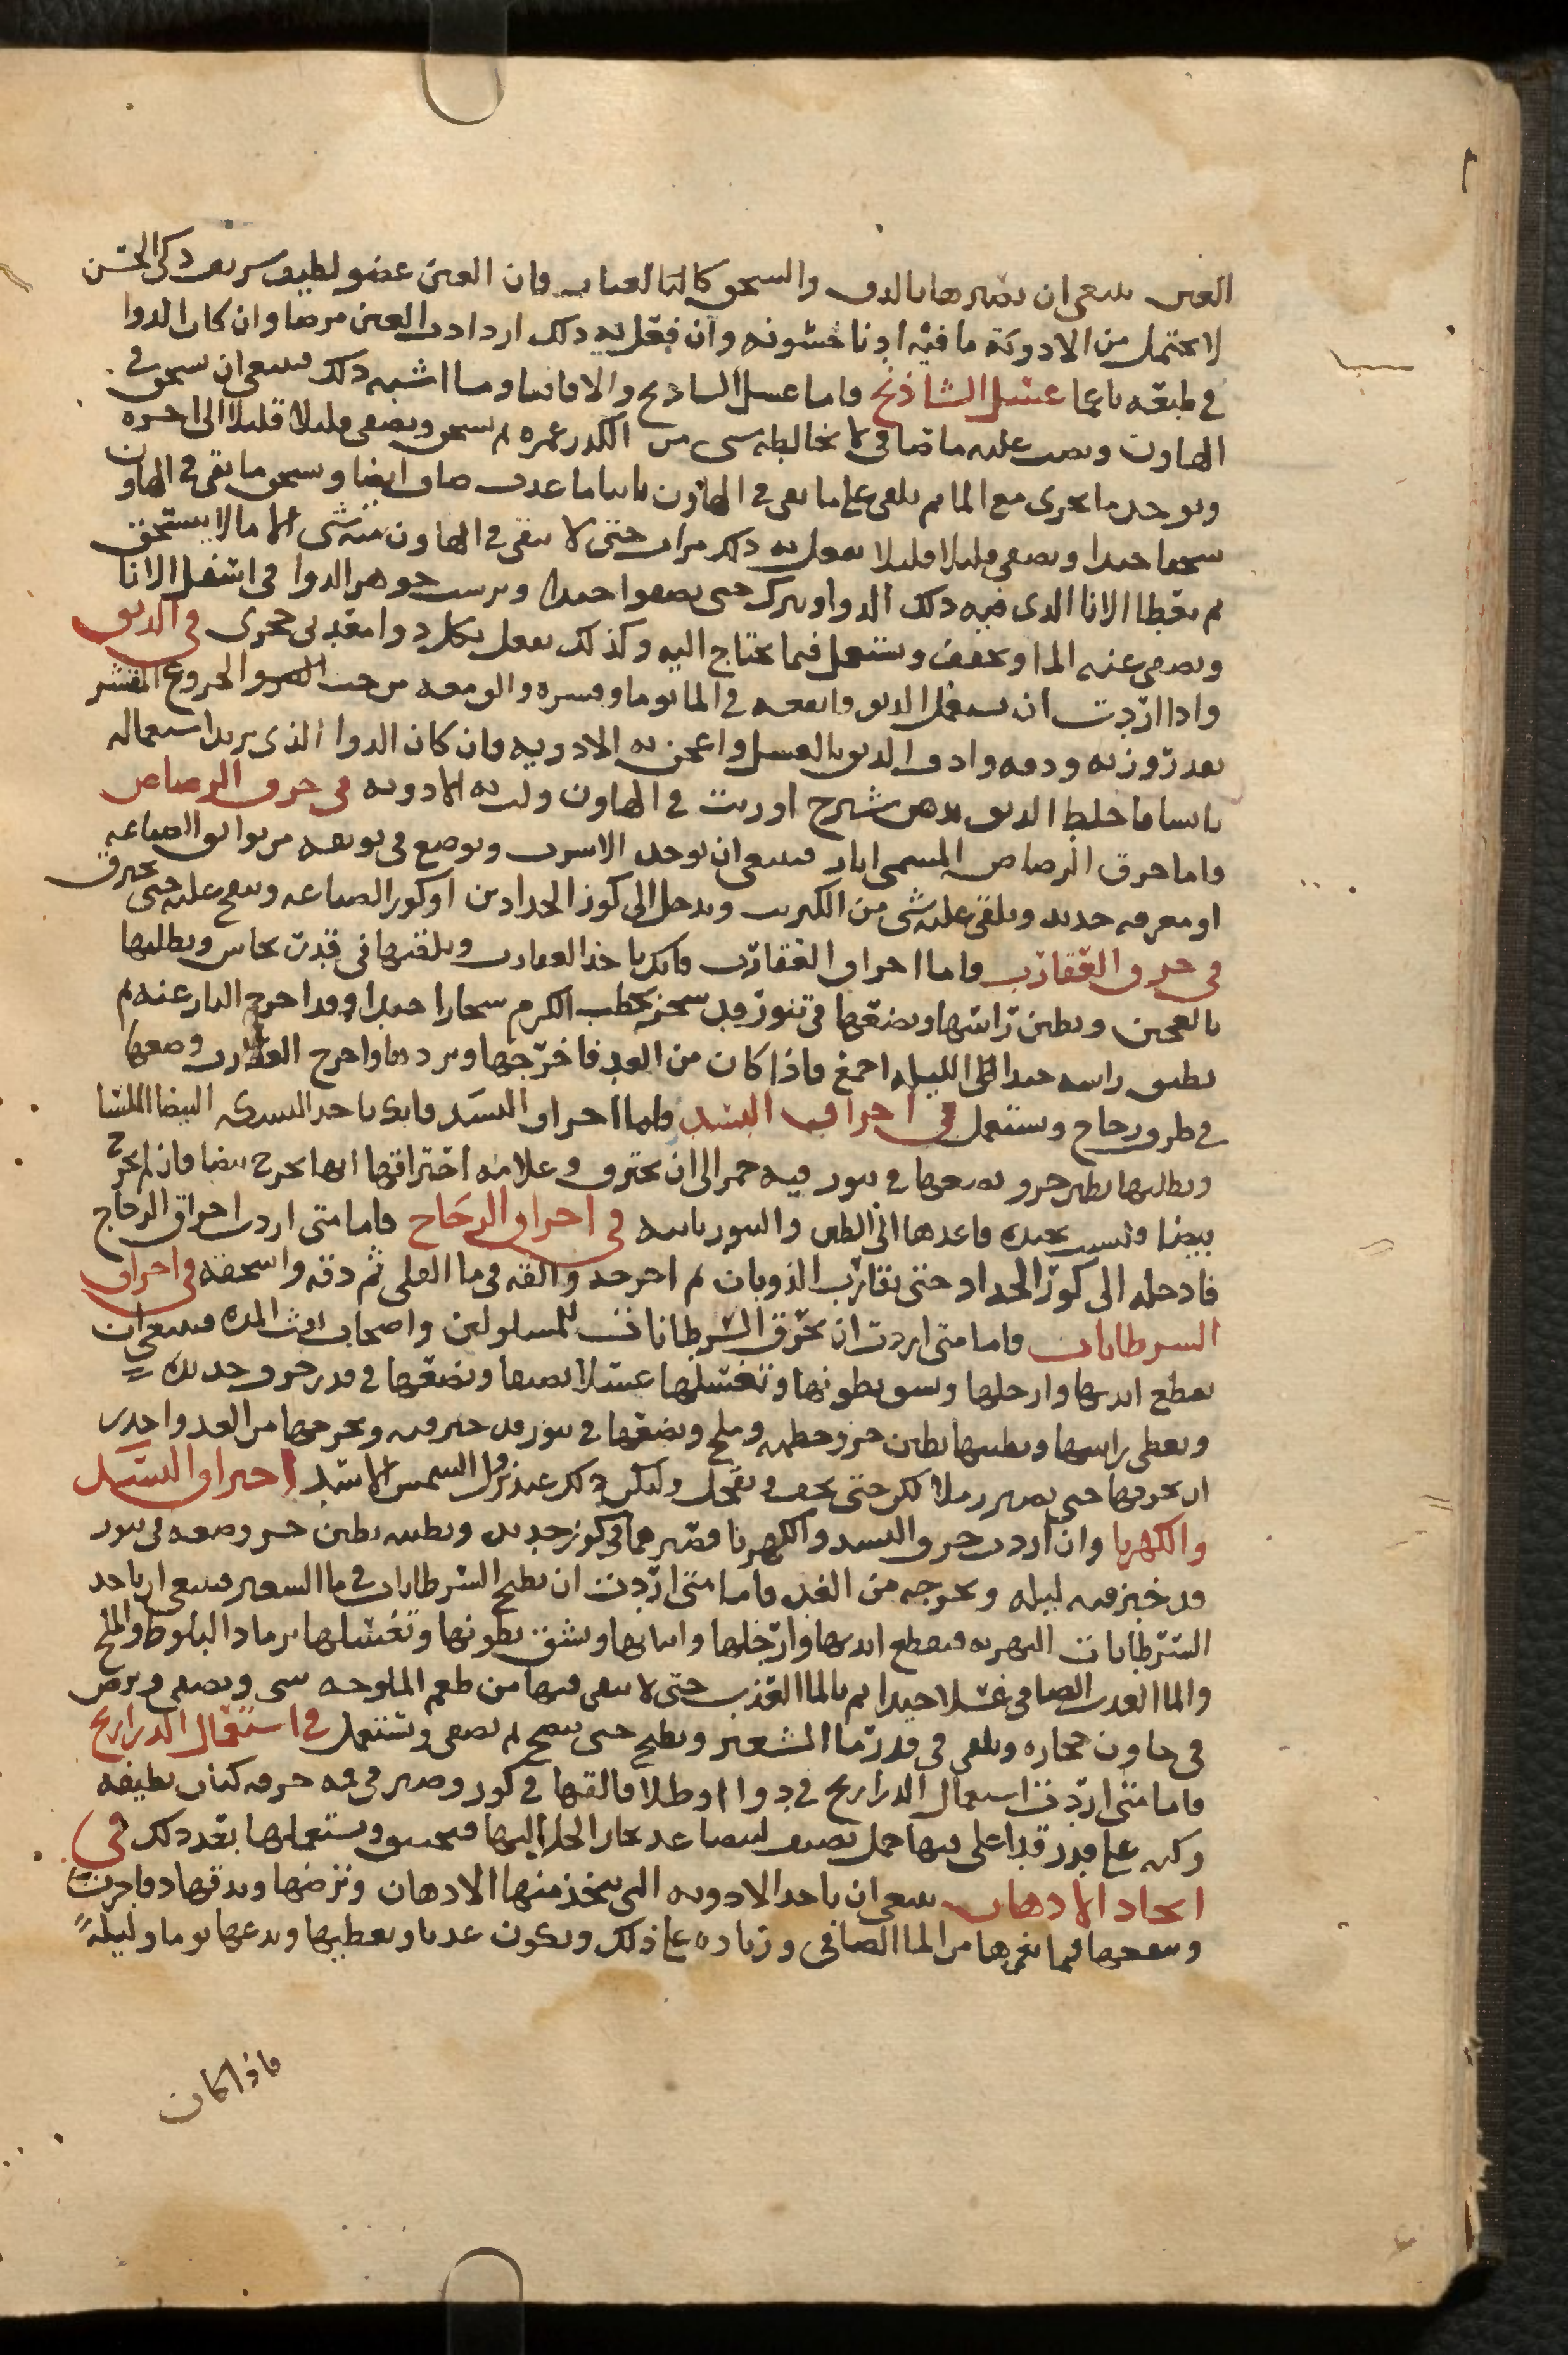 العين ينبغي ان تصيرها بالدق والسحق كالهبا لعباب فان العين عضو لطيف سريع ذكي الحس
لا يحتمل من الادوية ما فيه ادنا خشونه وان فعل به ذلك ازدادت العين مرضا وان كان الدوا
في طبعه ناعما غسل الشاذنج واما غسل الشاذنج والاقاقيا وما اشبه ذلك فينبغي ان يسحق في
الهاون ويصب عليه ما صافي لا يخالطه شي من الكدر غمره ثم يسحق ويصفى قليلا قليلا الى اخره
ويوخذ ما يجري مع الما ثم يلقى على ما بقى في الهاون ثانيا ما عذب صاف ايضا ويسحق ما بقى في الهاون
سحقا جيدا ويصفى قليلا قليلا يفعل به ذلك مرات حتى لا يبقى في الهاون منه شي الا ما لا يستحق
ثم يغطا الانا الذي فيه ذلك الدوا ويترك حتى يصفوا جيدا ويرسب جوهر الدوا في اسفل الانا
ويصفى عنه الما ويجفف ويستعمل فيما يحتاج اليه وكذلك يفعل بكل دوا معدني حجري في الدبق
واذا اردت ان تستعمل الدبق فانقعه في الما يوما وقشره والق معه من حب الخروع المقشر
بعد زوزنه ودقه وادف الدبق بالعسل واعجن به الادويه فان كان الدوا الذي يريد استعماله
يابسا فاخلط الدبق بدهن شيرج او زيت في الهاون ولت به الادويه في حرق الرصاص
واما حرق الرصاص المسمى ابار فينبغي ان يوخذ الاسرب ويوضع في بوتقه من بواتق الصاغه
او مغرفه حديد ويلقى عليه شي من الكبريت ويدخل الى كوز الحدادين او كور الصاغه وينفخ عليه حتى يحترق
في حرق العقارب واما احراق العقارب فانك تاخذ العقارب وتلقيها في قدر نحاس وتطليها
بالعجين وتطين راسها وتضعها في تنور قد سجر بحطب الكرم سجارا جيدا وقد اخرج النار عنه ثم
يطبق راسه جيدا الى الليله اجمع فاذا كان من الغد فاخرجها وبردها واخرج العقارب وضعها
في ظرف زجاج وتستعمل في احراق البسد واما احراق البسد فانك تاخذ البسدى البيضا الملسا
وتطليها بطين حر وتضعها في تنور فيه جمر الى ان يحترق وعلامة احتراقها انها تخرج بيضا فان لم تخرج
بيضا وليست بجيده فاعدها الى الطين والتنور ثانيه في احراق الزجاج فاما متى اردت احراق الزجاج
فادخله الى كوز الحداد حتى يقارب الذوبان ثم اخرجه والقه في ما القلى ثم دقه واسحقه في احراق
السرطانات واما متى اردت ان تحرق السرطانات للمسلولين واصحاب نفث المده فينبغي ان
تقطع ايديها وارجلها وتشق بطونها وتغسلها غسلا نصفا وتضعها في قدر خزف جديده
وتغطى راسها وتطينها بطين حر وخطمي وملح وتضعها في تنور قد خبز فيه وتخرجها من الغد واحذر
ان تحرقها حتى تصير رملا لكن حتى تجف وتقحل وليكن ذلك عند نزول الشمس الاسد احراق البسد
والكهربا وان اردت حرق البسد والكهربا فصيرهما في كوز جديد وتطينه بطين حر وضعه في تنور
قد خبز فيه ليله وتخرجه من الغد واما متى اردت ان تطبخ السرطانات في ما الشعير فينبغي ان تاخذ
السرطانات النهريه فتقطع ايديها وارجلها وانيابها وتشق بطونها وتغسلها برماد البلوط والملح
والما العذب الصافي غسلا جيدا ثم بالما العذب حتى لا يبقى فيها من طعم الملوحه شي وتصفى وترض
في هاون حجاره وتلقى في قدر ما الشعير وتطبخ حتى ينضج ثم تصفى وتستعمل في استعمال الذراريح
فاما متى اردت استعمال الذراريح في دوا او طلا فالقها في كوز وصير في فمه خرقه كتان نظيفه
وكبه على قدر قد اغلى فيها خل ثقيف ليتصاعد بخار الخل اليها فتختنق وتستعملها بعد ذلك في
اتخاد الادهان ينبغي ان تاخذ الادويه التي تتخذ منها الادهان وترضها وتدقها دقا جريشا
وتنقعها فيما يغمرها من الما الصافي وزياده على ذلك ويكون عذبا وتغطيها وتدعها يوما وليلة
فاذا كان